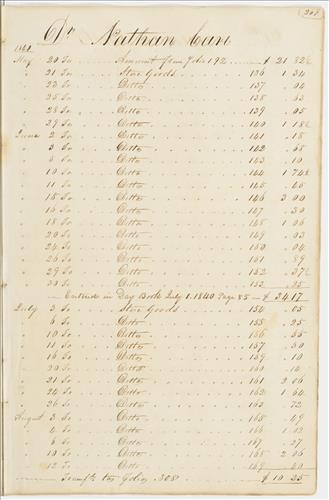 Dr Nathan
May 20 To Amount from folio 192 $ 21 82½
21 To Store Goods 136 1 34
23 To Ditto 137 .04
25 To Ditto 138
28 To Ditto 139 .05
29 To Ditto 140 1 18½
June 2 To Ditto 141 .18
3 To Ditto 142 .68
6 To Ditto 143 .10
10 To Ditto 144 1 74½
11 To Ditto 145
15 To Ditto 146 3 00
16 To Ditto 147 .30
18 To Ditto 148 1 06
20 To Ditto 149 .03
24 To Ditto 150 .04
26 To Ditto 151 .89
29 To Ditto 152 .37½
30 To Ditto 153 .25
Entered in Day Book July 1. 1840 Page 85 $ 34.17
July 3 To Store Goods 154 .05
6 To Ditto 155 .25
10 To Ditto 156
11 To Ditto 157
16 To Ditto 159 .10
20 To Ditto 160 .14
21 To Ditto 161 2 06
24 To Ditto 162 1 64
26 To Ditto 163 .72
August 3 To Ditto 165 .49
4 To Ditto 166
6 To Ditto 167 .27
10 To Ditto 168 2 06
12 To Ditto 169
to Folio 308 $ 10 35